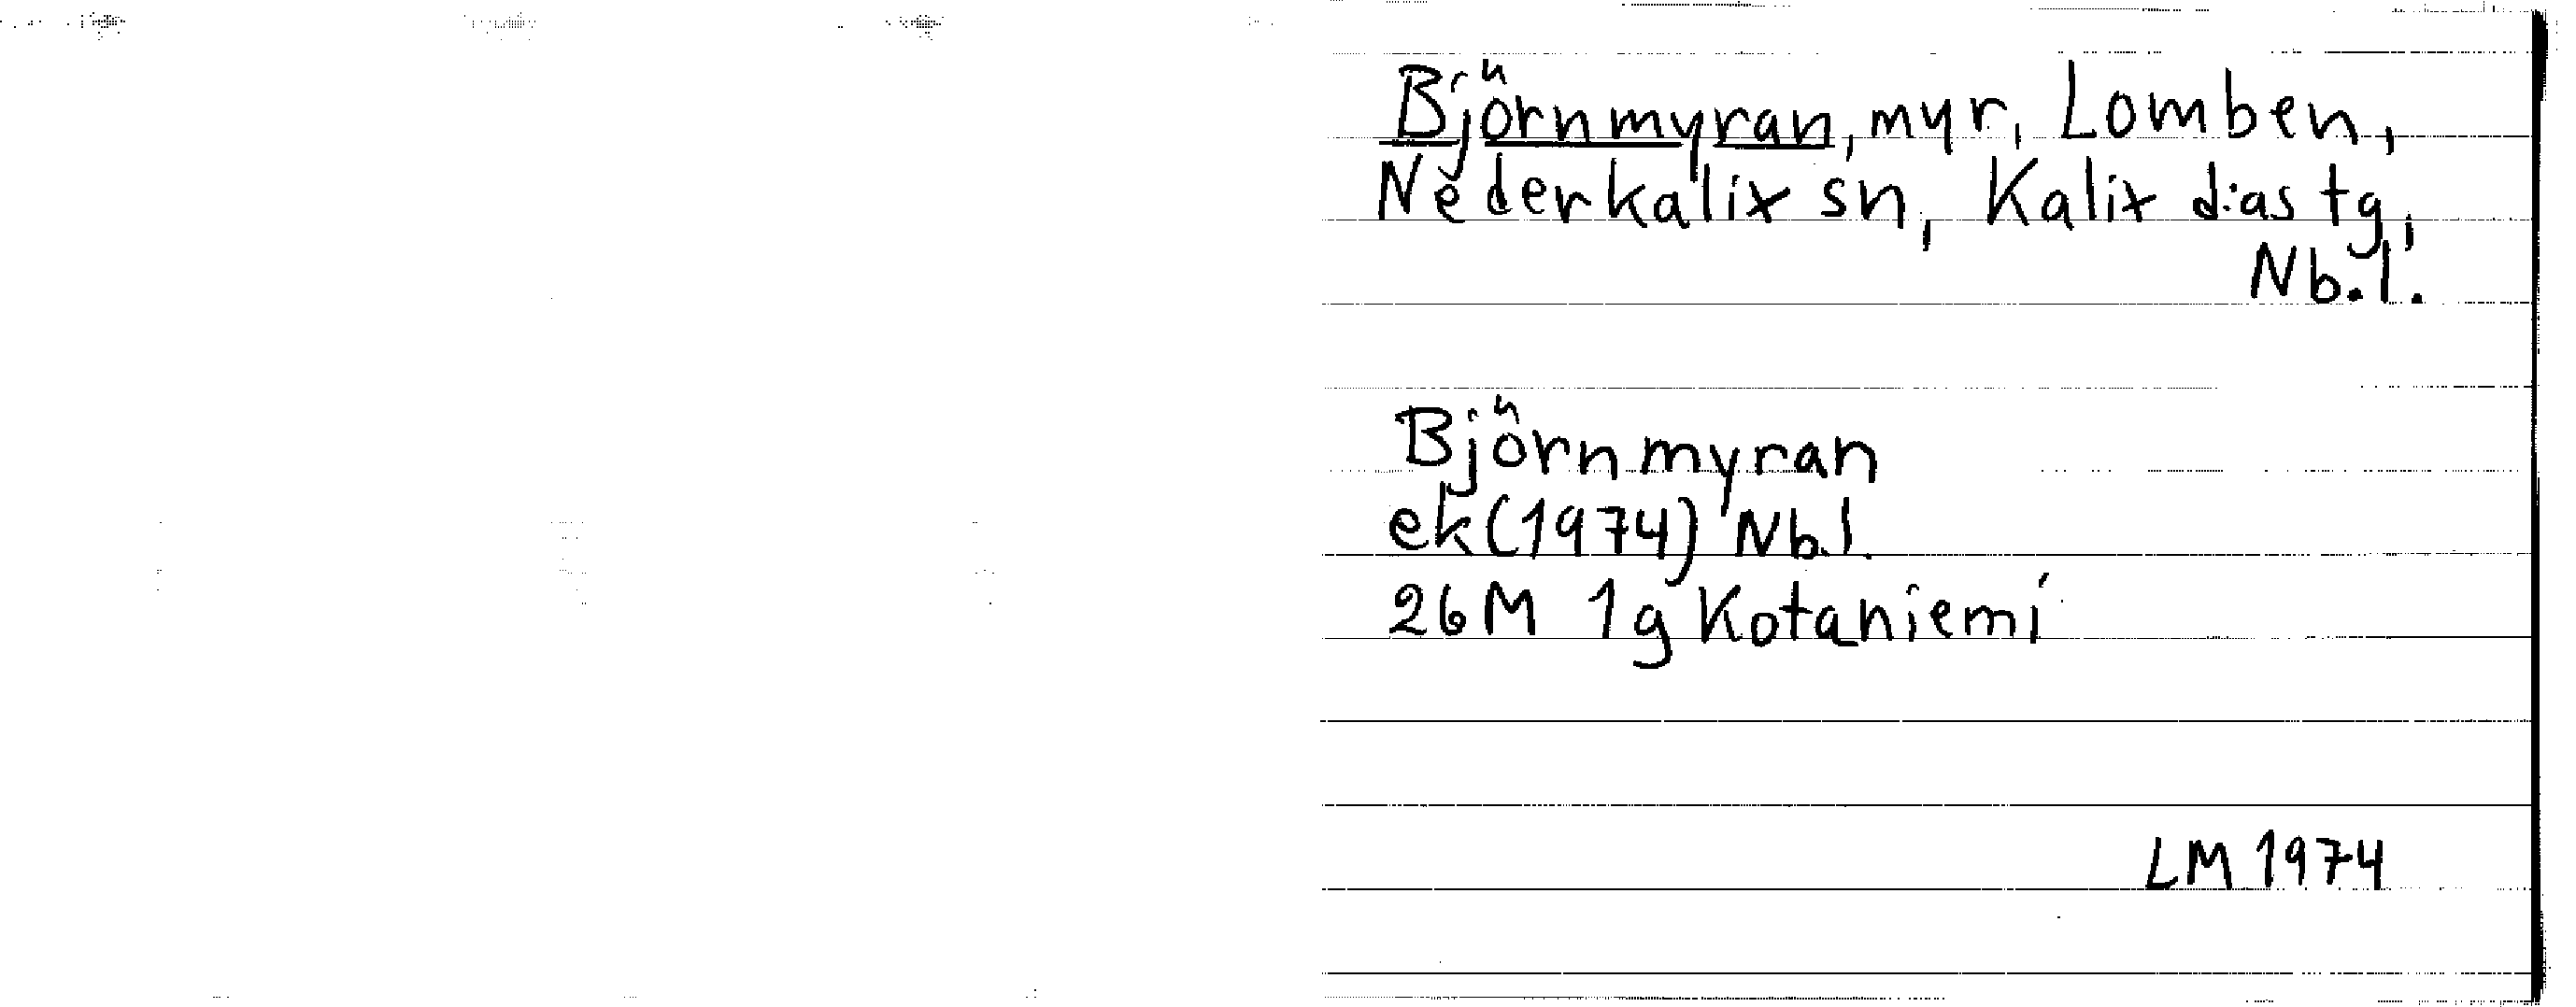 Björnmyran, myr, Lomben,
Nederkalix sn, Kalix d:as tg,
Nb.l.
Björnmyran
ek (1974) Nb.l.
26M 1g Kotaniemi
LM 1974